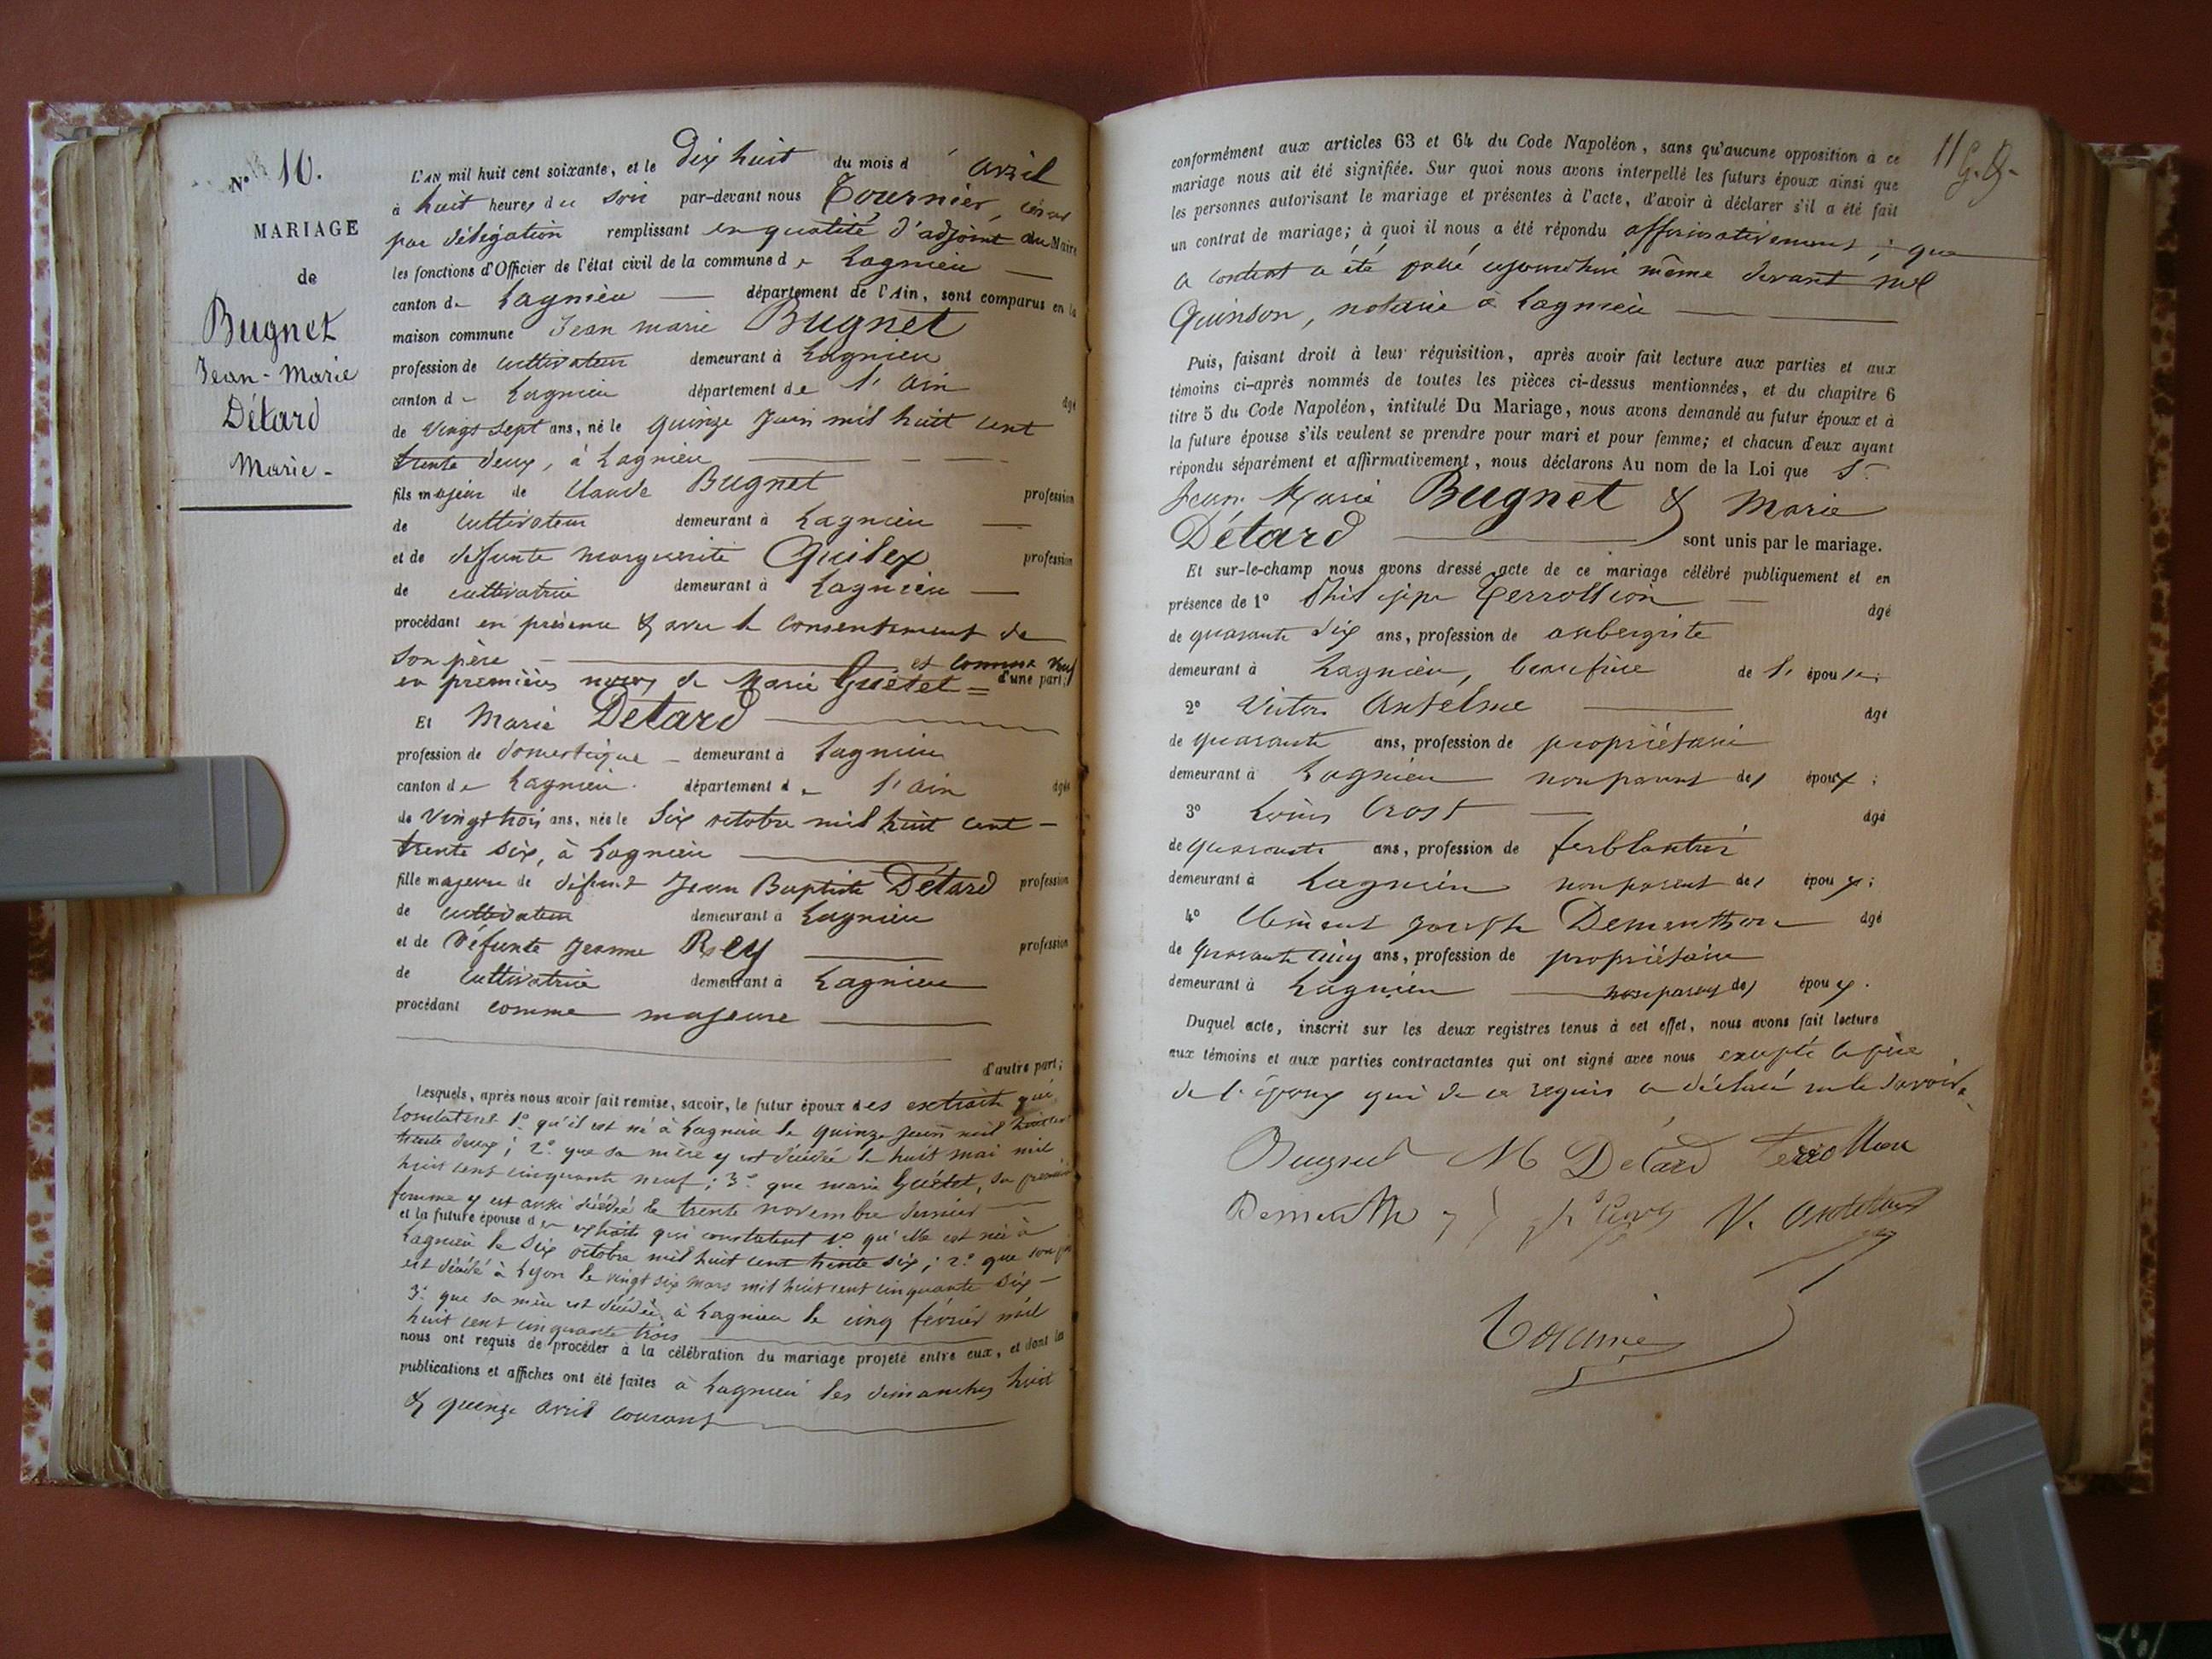 N° 10.
MARIAGE
de
Bugnet
Jean-Marie
Détard
Marie-
L'AN mil huit cent soixante, et le dix huit du mois d' avril
à huit heures du soir par-devant nous Tournier,
par délégation remplissant en qualité d'adjoint au Maire
les fonctions d'Officier de l'état civil de la commune de Lagnieu
canton de Lagnieu département de l'Ain, sont comparus en la
maison commune Jean marie Bugnet
profession de cultivateur demeurant à Lagnieu
canton de Lagnieu département de l'Ain âgé
de vingt sept ans, né le quinze juin mil huit cent
trente deux, à Lagnieu
fils majeur de Claude Bugnet profession
de cultivateur demeurant à Lagnieu
et de défunte Marguerite profession
de cultivatrice demeurant à Lagnieu
procédant en présence & avec le consentement de
son père et comme veuf
en premières noces de Marie Guétet = d'une part;
Et Marie Détard
profession de domestique demeurant à Lagnieu
canton de Lagnieu département de l'Ain âgée
de vingt trois ans, née le six octobre mil huit cent
trente six, à Lagnieu
fille majeure de défunt Jean Baptiste Détard profession
de cultivateur demeurant à Lagnieu
et de défunte Jeanne Rey profession
de cultivatrice demeurant à Lagnieu
procédant comme majeure
d'autre part;
Lesquels, après nous avoir fait remise, savoir, le futur époux des extraits qui
constatent 1° qu'il est né à Lagnieu le quinze juin mil huit cent
trente deux; 2° que sa mère y est décédée le huit mai mil
huit cent cinquante neuf; 3° que marie Guétet, sa première
femme y est aussi décédée le trente novembre dernier
et la future épouse des extraits qui constatent 1° qu'elle est née à
Lagnieu le six octobre mil huit cent trente six; 2° que son père
est décédé à Lyon le vingt six mars mil huit cent cinquante six
3° que sa mère est décédée à Lagnieu le cinq février mil
huit cent cinquante trois
nous ont requis de procéder à la célébration du mariage projeté entre eux, et dont les
publications et affiches ont été faites à Lagnieu les dimanches huit
& quinze avril courant
11
conformément aux articles 63 et 64 du Code Napoléon, sans qu'aucune opposition à ce
mariage nous ait été signifiée. Sur quoi nous avons interpellé les futurs époux ainsi que
les personnes autorisant le mariage et présentes à l'acte, d'avoir à déclarer s'il a été fait
un contrat de mariage; à quoi il nous a été répondu affirmativement; que
ce contrat a été passé aujourd'hui même devant
Quinson, notaire à Lagnieu
Puis, faisant droit à leur réquisition, après avoir fait lecture aux parties et aux
témoins ci-après nommés de toutes les pièces ci-dessus mentionnées, et du chapitre 6
titre 5 du Code Napoléon, intitulé Du Mariage, nous avons demandé au futur époux et à
la future épouse s'ils veulent se prendre pour mari et pour femme; et chacun d'eux ayant
répondu séparément et affirmativement, nous déclarons Au nom de la Loi que Sr
Jean Marie Bugnet & Marie
Détard sont unis par le mariage.
Et sur-le-champ nous avons dressé acte de ce mariage célébré publiquement et en
présence de 1° Philippe Terrollion âgé
de quarante six ans, profession de aubergiste
demeurant à Lagnieu, beaufrère de l'épouse;
2° Victor Anselme âgé
de quarante ans, profession de propriétaire
demeurant à Lagnieu non parent des époux;
3° Louis Crost âgé
de quarante ans, profession de ferblantier
demeurant à Lagnieu non parent des époux;
4° Clément Joseph Dementhon âgé
de quarante cinq ans, profession de propriétaire
demeurant à Lagnieu non parent des époux.
Duquel acte, inscrit sur les deux registres tenus à cet effet, nous avons fait lecture
aux témoins et aux parties contractantes qui ont signé avec nous excepté le père
de l'époux qui de ce requis a déclaré ne le savoir.
Bugnet M Détard Terrollion
V. Anselme
Tournier